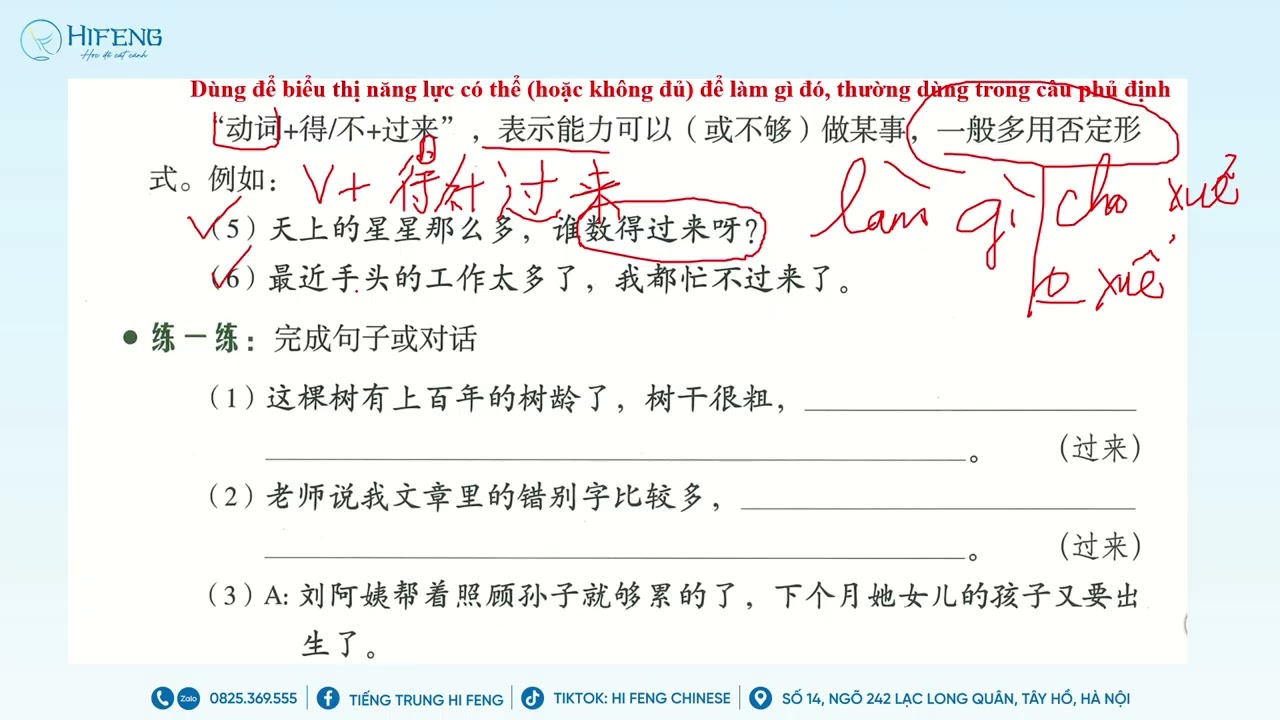 HIFENG
Học để cất cánh
Dùng để biểu thị năng lực có thể (hoặc không đủ) để làm gì đó, thường dùng trong câu phủ định
“动词+得/不+过来”，表示能力可以（或不够）做某事，一般多用否定形
式。例如：
V+ 得/不+ 过来
làm gì cho xuể
xuể
（5）天上的星星那么多，谁数得过来呀？
（6）最近手头的工作太多了，我都忙不过来了。
● 练一练：完成句子或对话
（1）这棵树有上百年的树龄了，树干很粗，
。 （过来）
（2）老师说我文章里的错别字比较多，
。 （过来）
（3）A: 刘阿姨帮着照顾孙子就够累的了，下个月她女儿的孩子又要出
生了。
Zalo 0825.369.555 TIẾNG TRUNG HI FENG TIKTOK: HI FENG CHINESE SỐ 14, NGÕ 242 LẠC LONG QUÂN, TÂY HỒ, HÀ NỘI